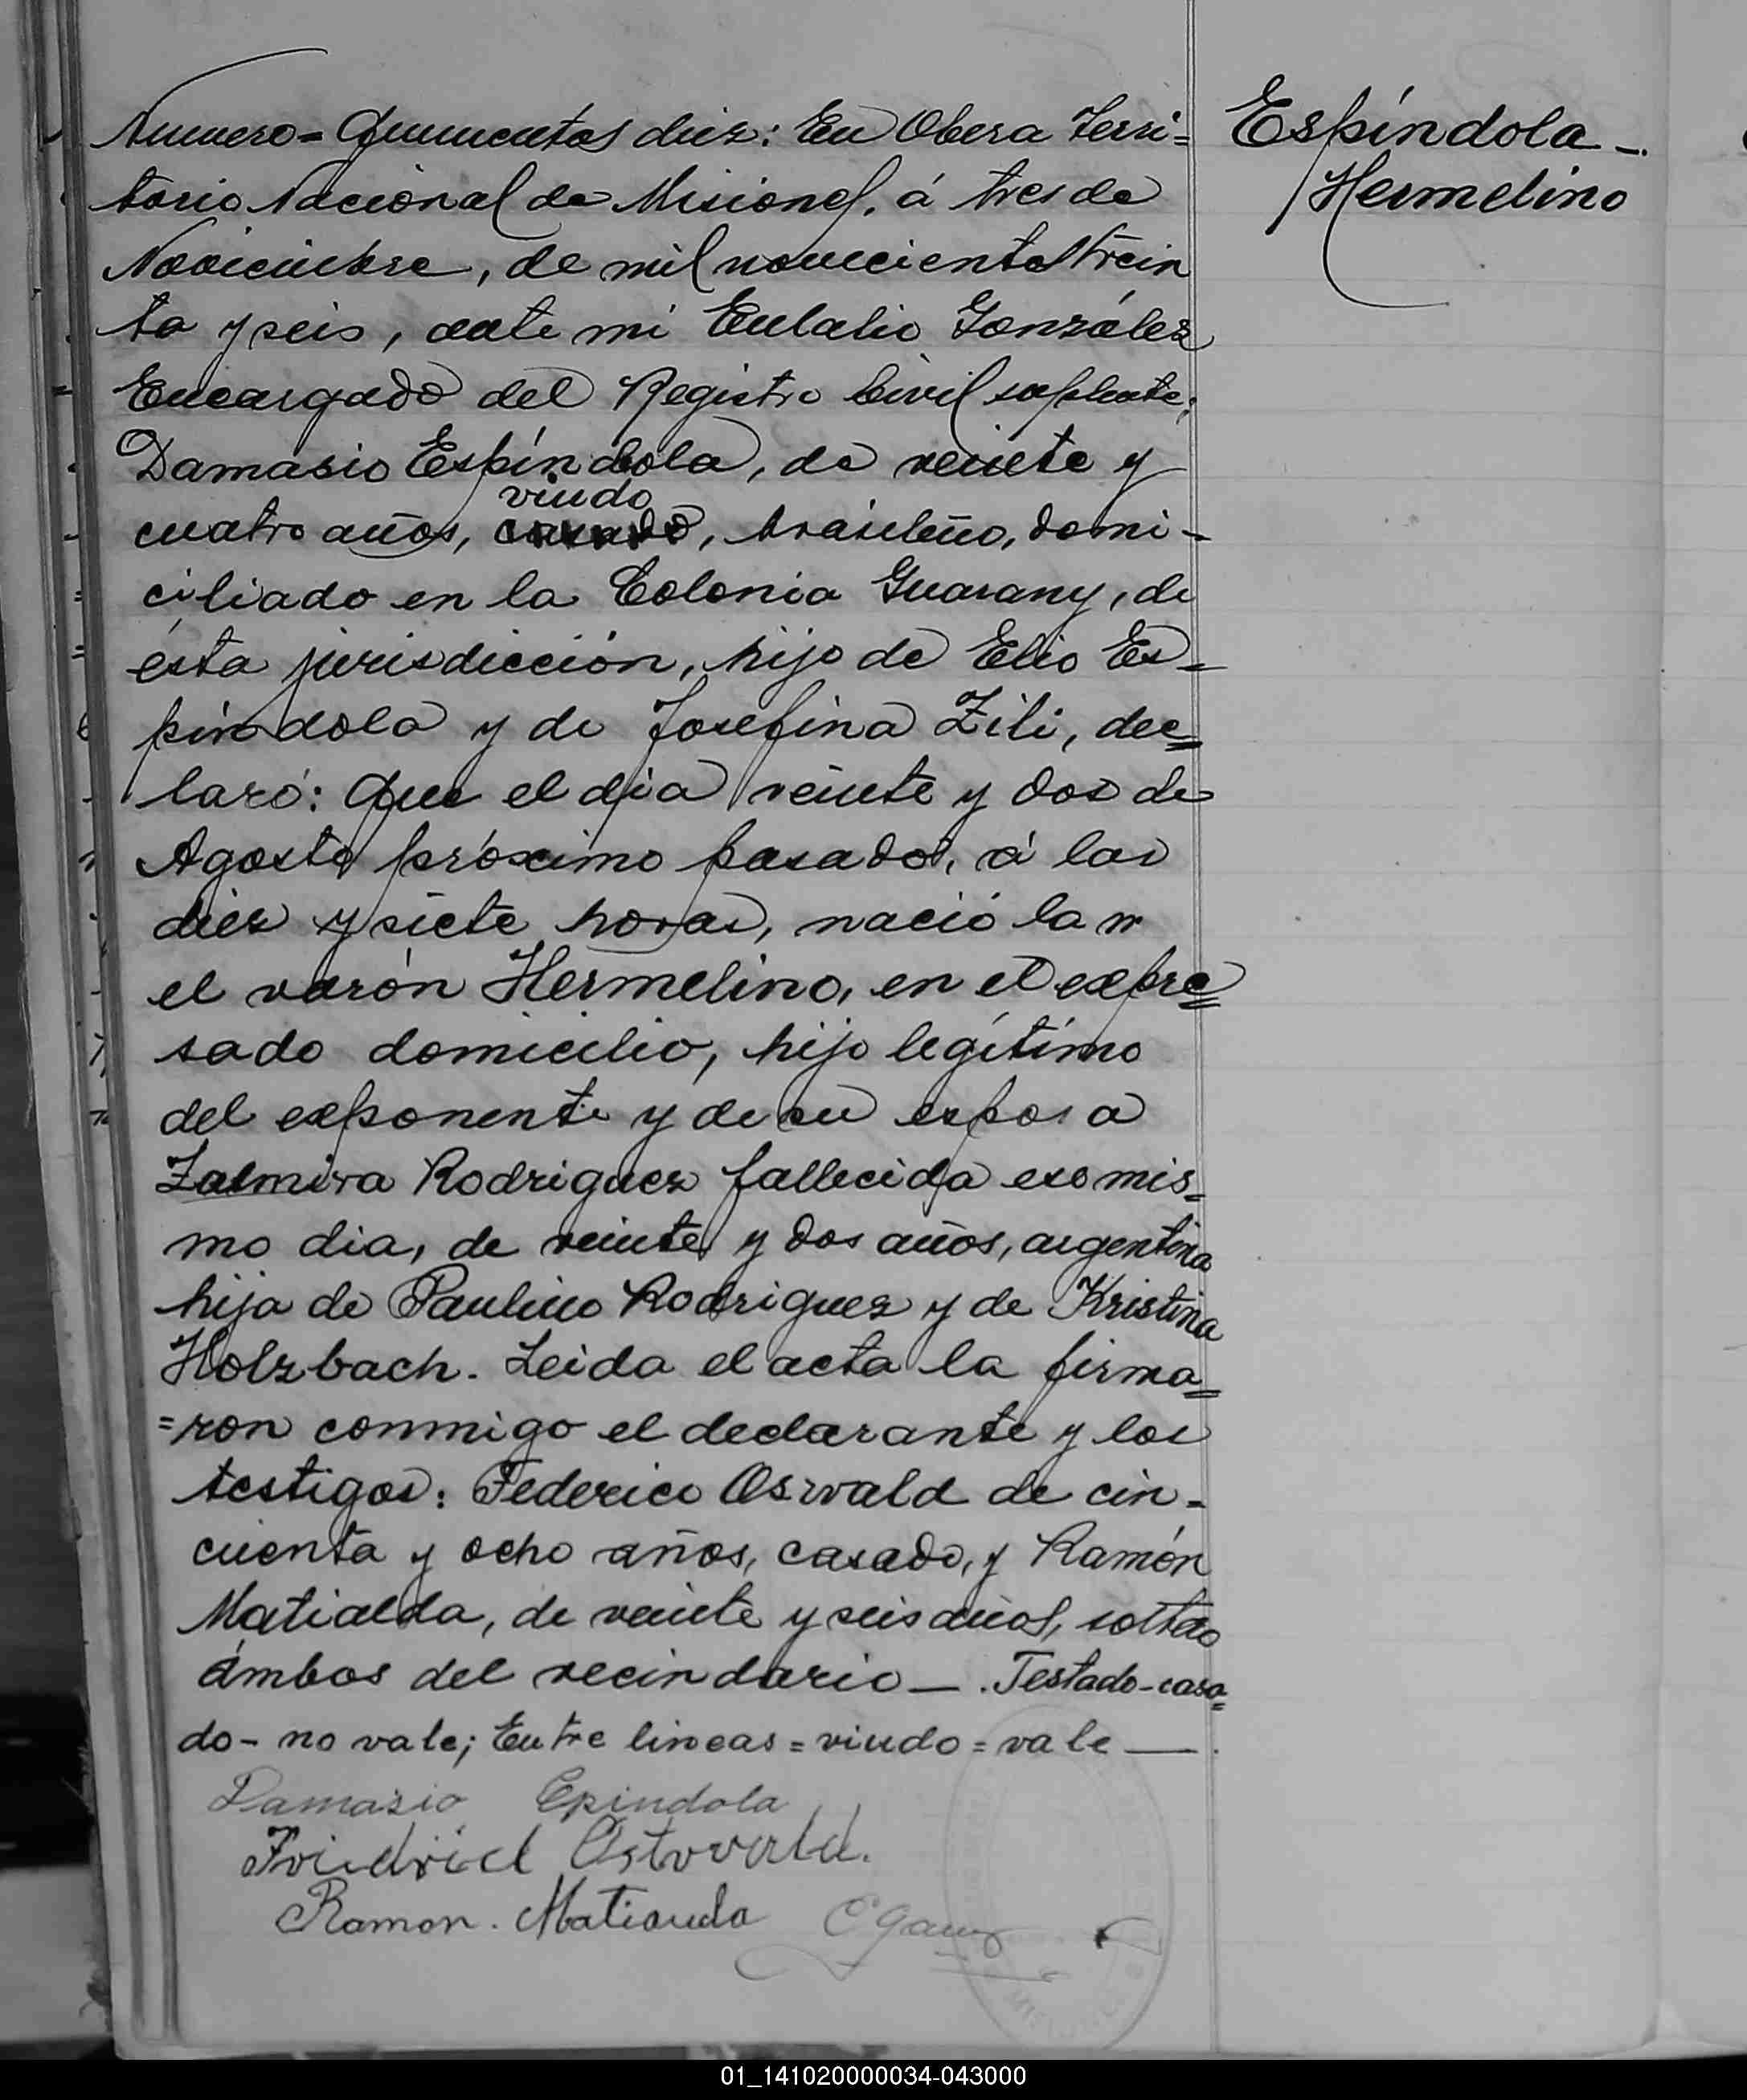 Numero= Quinientos diez: En Obera Terri=
torio Nacional de Misiones, á tres de
Noviembre, de mil novecientos trein
ta y seis, ante mi Eulalio González
Encargado del Registro Civil suplente;
Damasio Espíndola, de veinte y
viudo
cuatro años, casado, brasileño, domi-
ciliado en la Colonia Guarany, de
ésta jurisdicción, hijo de Elio Es-
píndola y de Josefina Zili, dec=
laró: Que el dia veinte y dos de
Agosto próximo pasado, á las
diez y siete horas, nació la n
el varón Hermelino, en el expre=
sado domicilio, hijo legítimo
del exponente y de su esposa
Zalmira Rodriguez fallecida ese mis=
mo dia, de veinte y dos años, argentina
hija de Paulino Rodriguez y de Kristina
Holzbach. Leida el acta la firma=
=ron conmigo el declarante y los
testigos: Federico Oswald de cin-
cuenta y ocho años, casado, y Ramón
Matialda, de veinte y seis años, soltero
ámbos del vecindario—. Testado-casa=
do- no vale; Entre lineas = viudo = vale —.
Damasio Epindola
Ramon. Matiauda
Espíndola-.
Hermelino
01_141020000034-043000